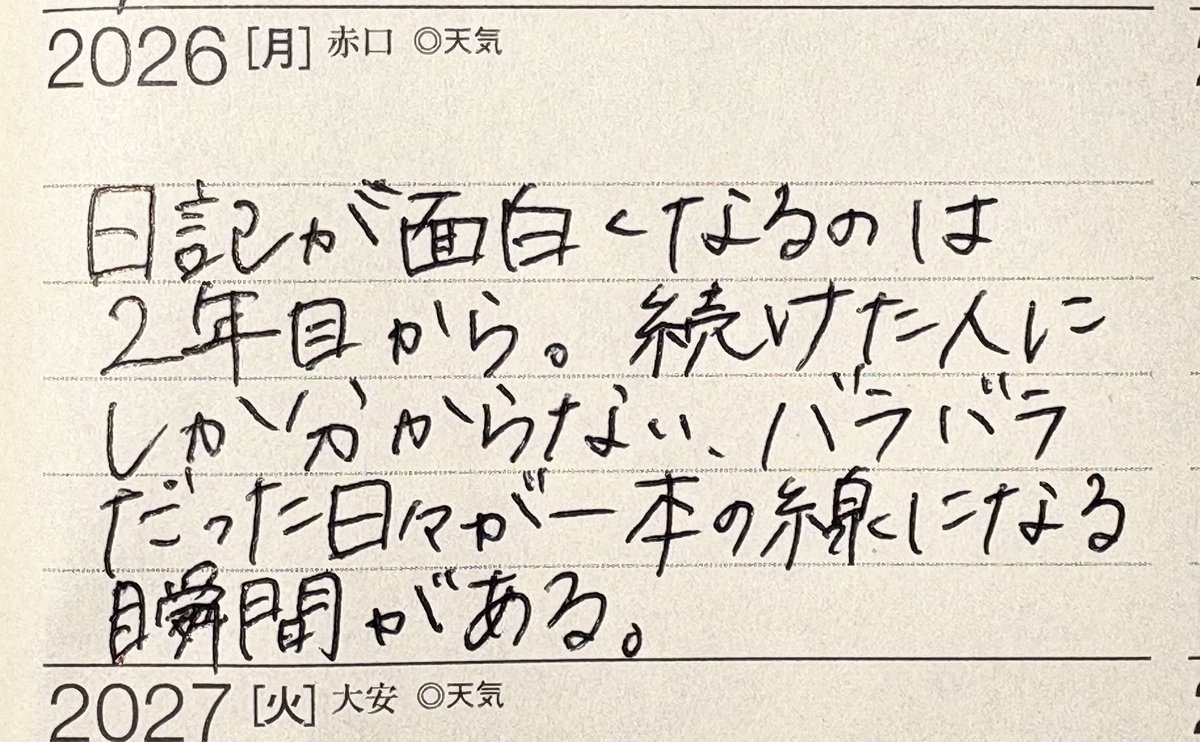 2026 [月] 赤口 ◎天気
日記が面白くなるのは
2年目から。続けた人に
しか分からない、バラバラ
だった日々が一本の線になる
瞬間がある。
2027 [火] 大安 ◎天気